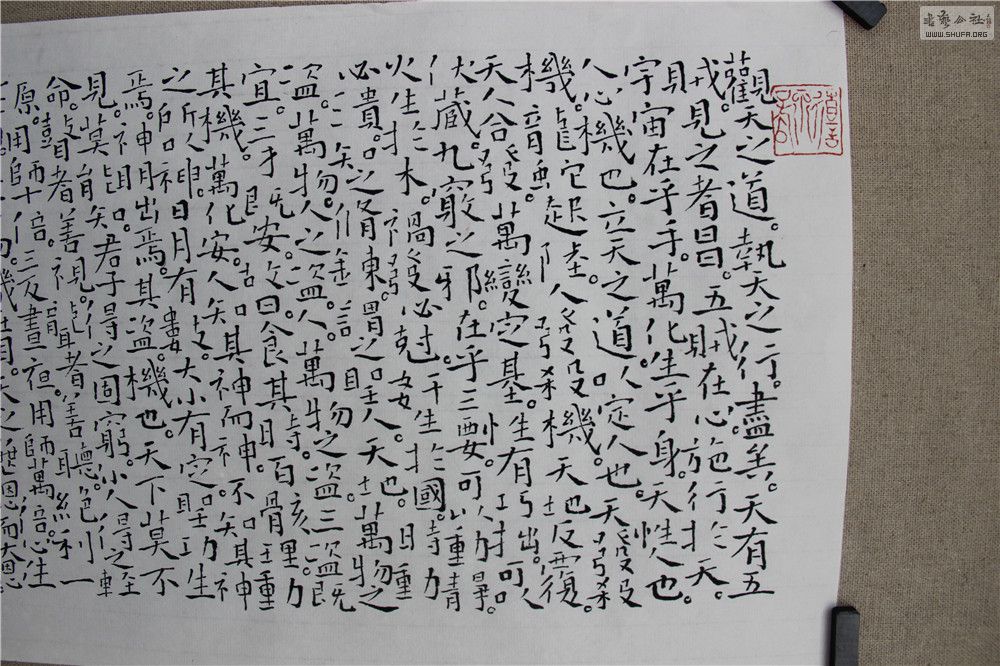 觀天之道。執天之行。盡矣。天有五
賊。見之者昌。五賊在心。施行於天。
宇宙在乎手。萬化生乎身。天性人也。
人心機也。立天之道。以定人也。天發殺
機。龍蛇起陸。人發殺機。天地反覆。
天人合發。萬變定基。性有巧拙。可以
伏藏。九竅之邪。在乎三要。可以動靜。
火生於木。禍發必剋。奸生於國。時動
必潰。知之修煉。謂之聖人。天地。萬物之
盜。萬物。人之盜。人。萬物之盜。三盜既
宜。三才既安。故曰食其時。百骸理。動
其機。萬化安。人知其神而神。不知其神
之所以神。日月有數。大小有定。聖功生
焉。神明出焉。其盜機也。天下莫不
見。莫能知。君子得之固窮。小人得之輕
命。瞽者善視。聾者善聽。絕利一
源。用師十倍。三反晝夜。用師萬倍。心生
機在目。天之無恩而大恩
書藝公社
WWW.SHUFA.ORG